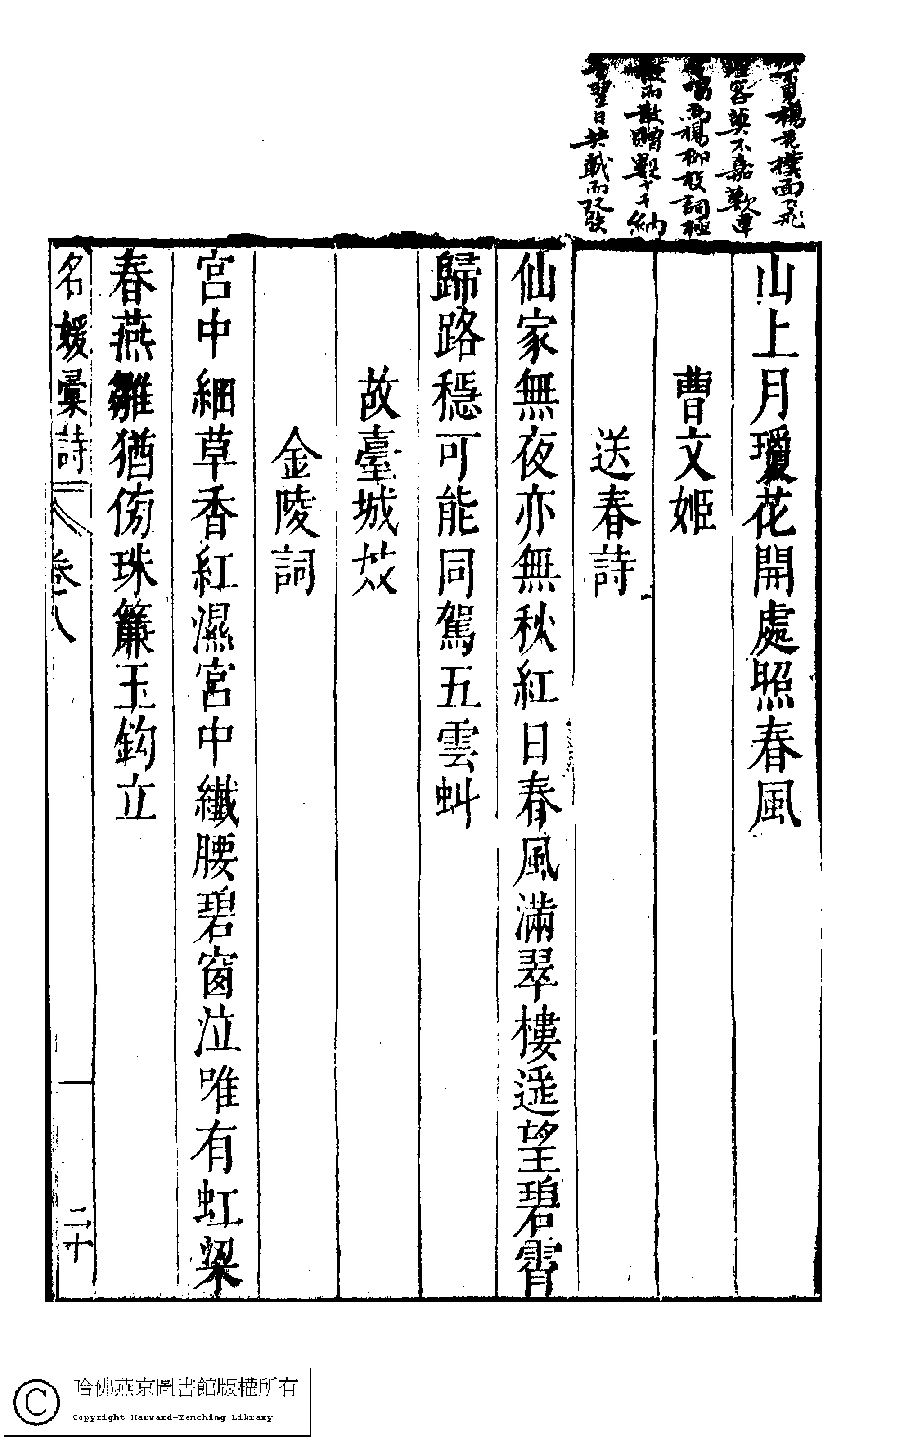 山上月瓊花開處照春風
曹文姬
送春詩
仙家無夜亦無秋紅日春風滿翠樓遥望碧霄
歸路穩可能同駕五雲虯
故臺城妓
金陵詞
宮中細草香紅濕宮中纖腰碧窗泣唯有虹梁
春燕雛猶傍珠簾玉鈎立
名媛彙詩 卷八 二十
楊花撲面飛
容莫不嘉歎
楊柳枝詞極
而散贈數十千納
翌日共載而
哈佛燕京圖書館版權所有
Copyright Harvard-Yenching Library